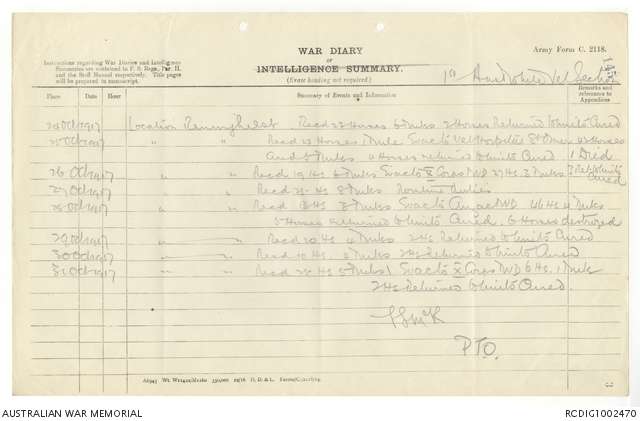 WAR DIARY
or
INTELLIGENCE SUMMARY.
(Erase heading not required.)
Army Form C. 2118.
Instructions regarding War Diaries and Intelligence
Summaries are contained in F. S. Regs., Part II.
and the Staff Manual respectively. Title pages
will be prepared in manuscript.
1st Aust Mobile Vet Section
Place
Date
Hour
Summary of Events and Information
Remarks and
references to
Appendices
24 Oct 1917 Location Reninghelst Recd 22 Horses 6 Mules 2 Horses Returned to Units Cured
25 Oct 1917 " " Recd 12 Horses 1 Mule Evac to Vet Hospital St Omer Horses
and 5 Mules Horses returned to Units Cured 1 Died
26 Oct 1917 " " Recd 19 Hs 6 Mules Evac to X Corps MVD 27 Hs 3 Mules Ret to Units
Cured
27 Oct 1917 Recd Hs 8 Mules Routine duties
28 Oct 1917 " " Recd Hs 3 Mules Evac to MVD 46 Hs 4 Mules
5 Horses Returned to Units Cured. 6 Horses destroyed
29 Oct 1917 " " Recd 20 Hs 4 Mules 2 Hs Returned to Units Cured
30 Oct 1917 " " Recd 10 Hs 2 Mules 2 Hs Returned to Units Cured
31 Oct 1917 " " Recd Hs 5 Mules Evac to X Corps MVD 6 Hs. 1 Mule
2 Hs Returned to Units Cured
P.T.O.
AUSTRALIAN WAR MEMORIAL
RCDIG1002470